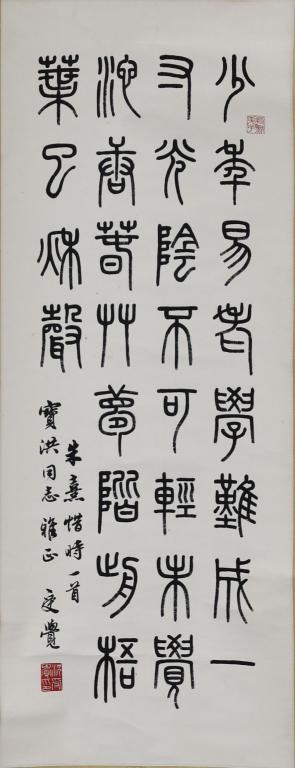 少年易老學難成一
寸光陰不可輕未覺
池唐春艸夢階前梧
葉已秋聲
朱熹惜時一首
寶洪同志雅正 受覺